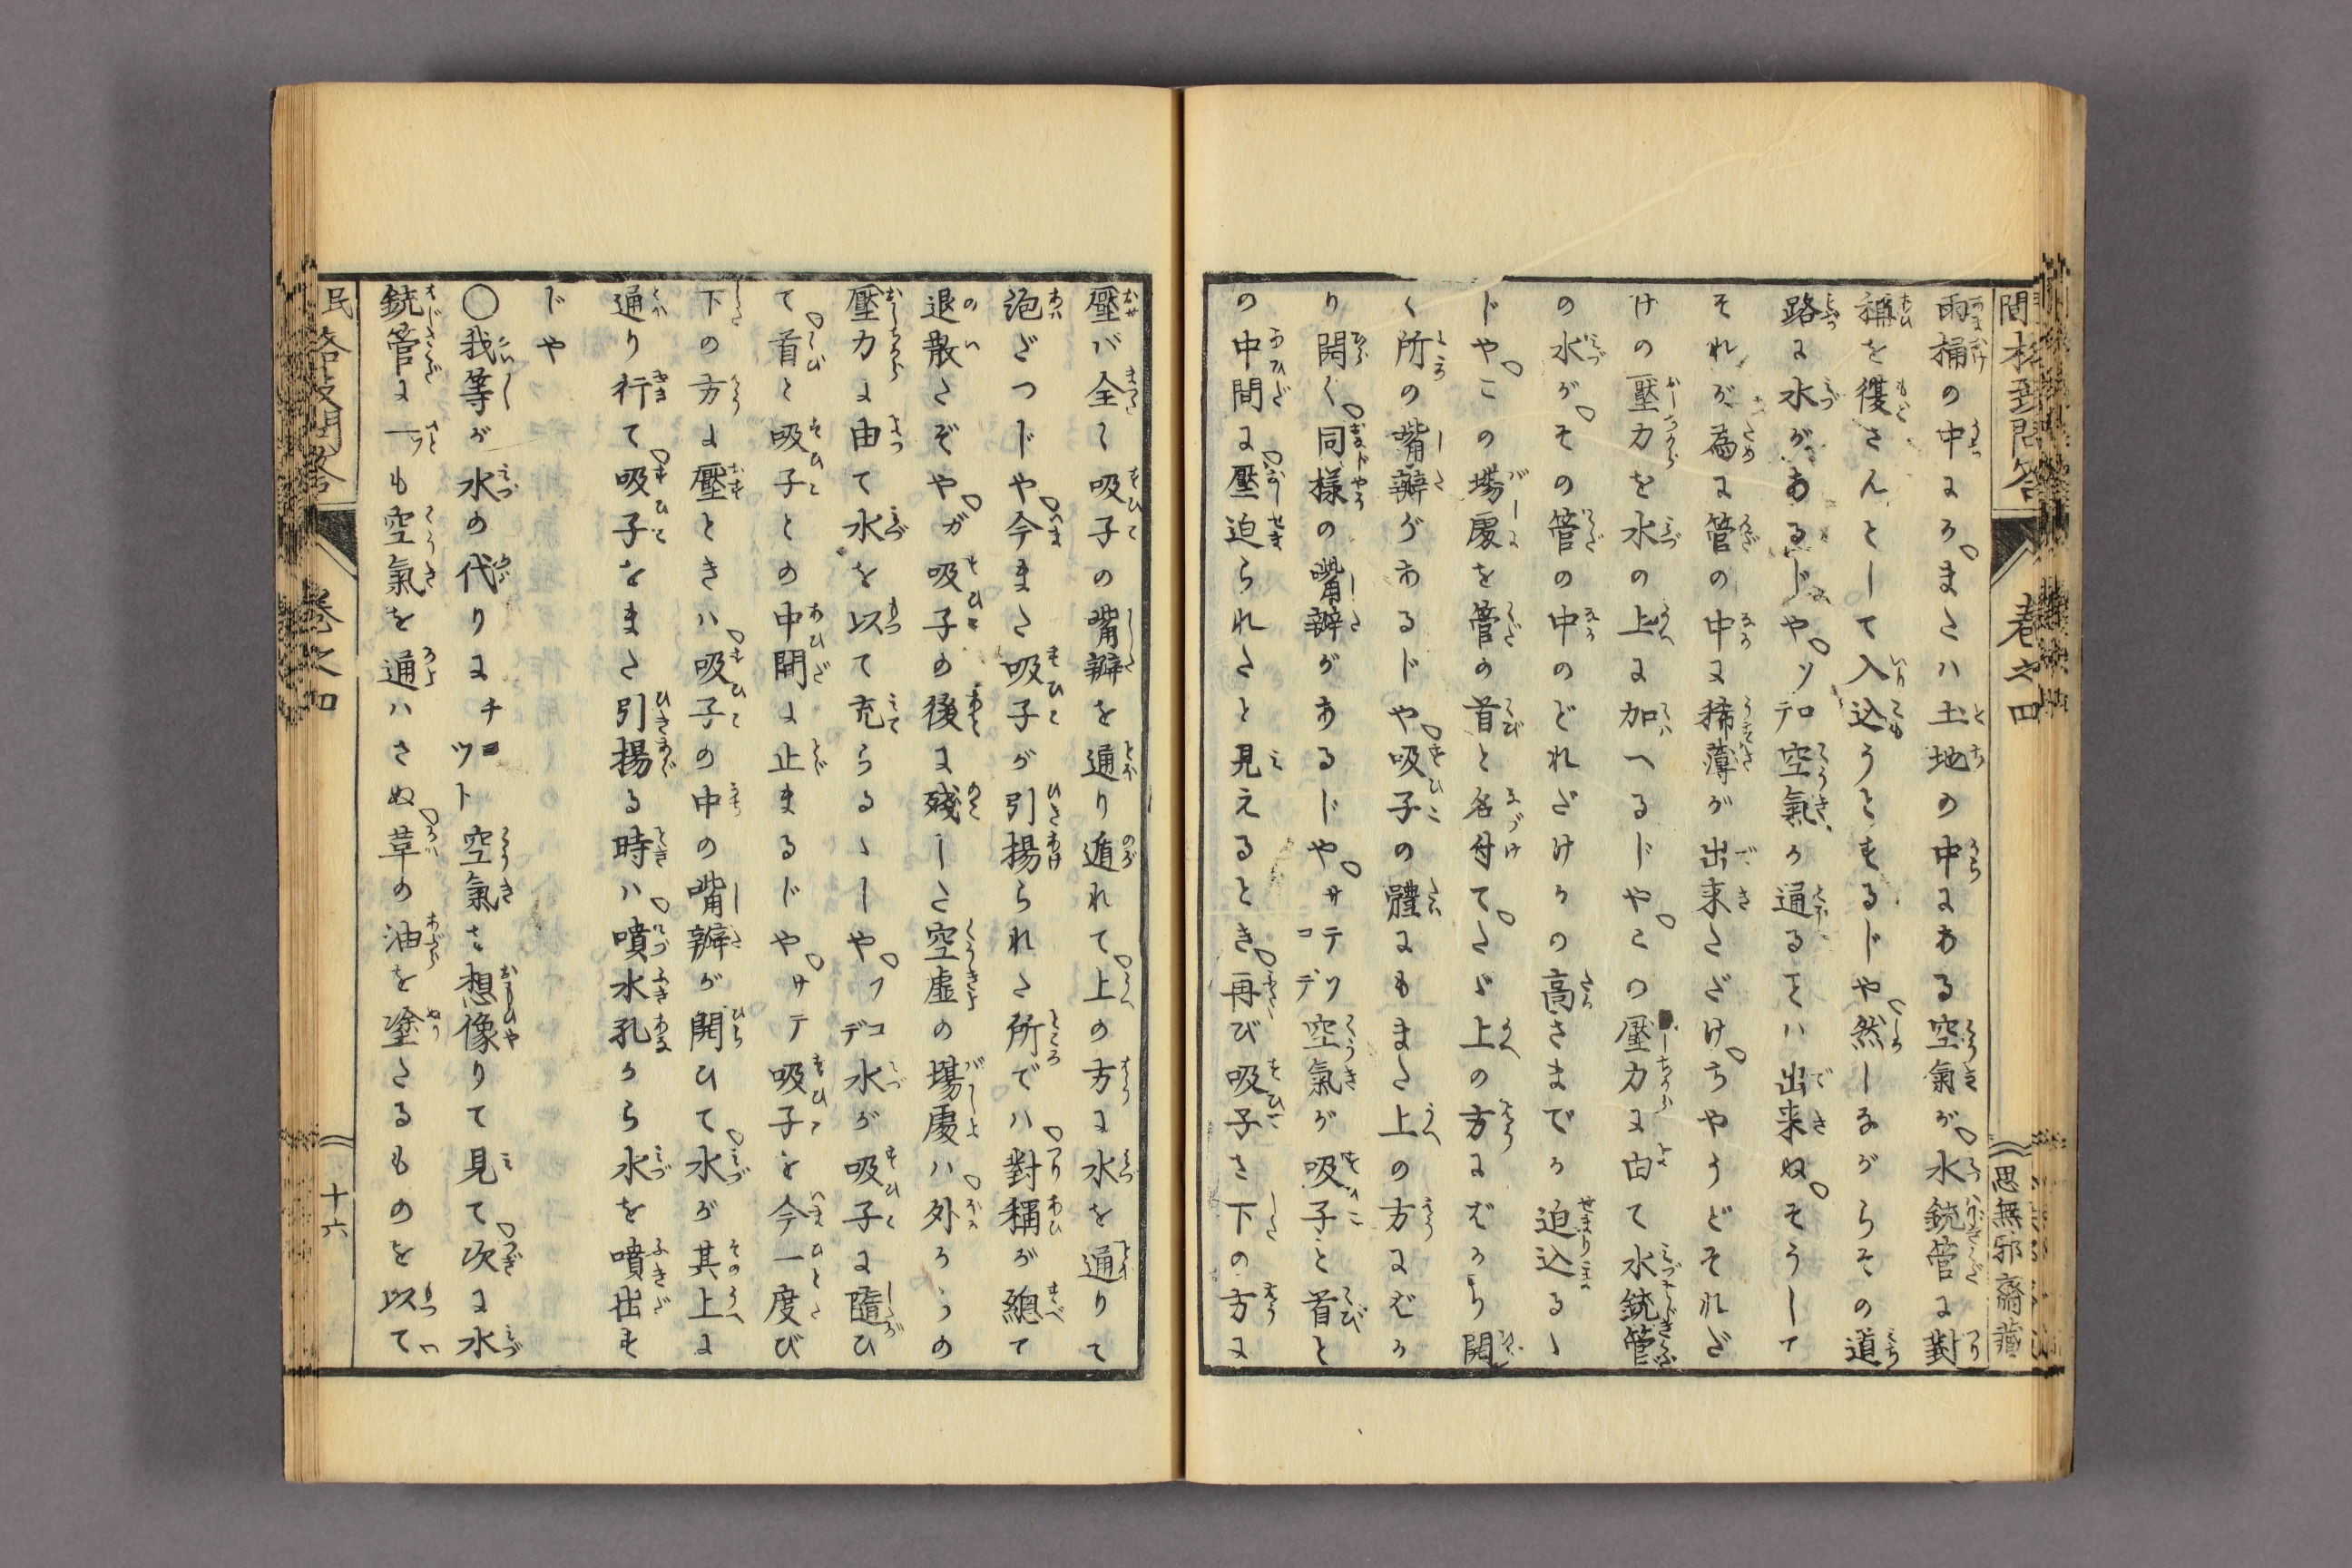 民間格致問答 巻之四 思無邪齋藏
雨桶の中ゟか、または土地の中にある空氣が、水銃管に對
稱を獲さんとして入込うとするじや、然しながらその道
路に水があるじや、ソコデ空氣が通るヿは出来ぬ、そうして
それが為に管の中に稀薄が出来ただけ、ちやうどそれだ
けの壓力を水の上に加へるじや、この壓力に由て水銃管
の水が、その管の中のどれだけかの高さまでか迫込るゝ
じや、この塲處を管の首と名付て、たゞ上の方にばかり開
く所の嘴瓣があるじや、吸子の體にもまた上の方にばか
り開く、同様の嘴瓣があるじや、サテソコデ空氣が吸子と首と
の中間に壓迫られたと見えるとき、再び吸子を下の方に
壓バ全く吸子の嘴瓣を通り遁れて、上の方に水を通りて
泡だつじや、今また吸子が引揚られた所でハ、對稱が總て
退散たぞや、ガ吸子の後に殘した空虚の塲處ハ、外からの
壓力に由て水を以て充らるゝしや、ソコデ水が吸子に隨ひ
て、首と吸子との中間に止まるじや、サテ吸子を今一度び
下の方に壓ときハ、吸子の中の嘴瓣が開ひて、水が其上に
通り行て、吸子をまた引揚る時ハ、噴水孔から水を噴出す
じや
〇我等が水の代りにチヨツト空氣を想像りて見て、次に水
銃管に一も空氣を通ハさぬ、草の油を塗たるものを以て
民間格致問答 巻之四 十六